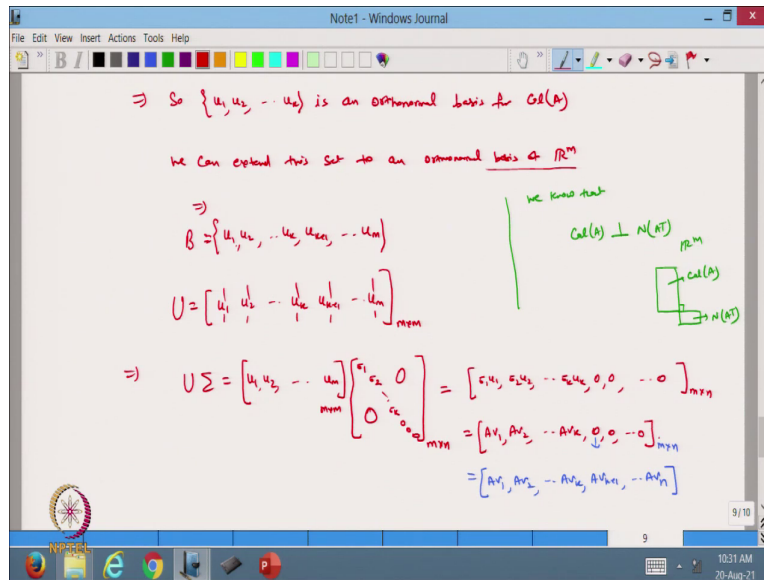 Note1 - Windows Journal
File Edit View Insert Actions Tools Help
B I
⇒ So {u₁, u₂, -- uₖ} is an orthonormal basis for Col(A)
We can extend this set to an orthonormal basis of ℝᵐ
⇒
B = {u₁, u₂, -- uₖ, uₖ₊₁, -- uₘ}
U = [u₁ u₂ -- uₖ uₖ₊₁ -- uₘ]ₘₓₘ
We know that
Col(A) ⊥ N(Aᵀ)
ℝᵐ
→ Col(A)
→ N(Aᵀ)
⇒ UΣ = [u₁, u₂, -- uₘ]ₘₓₘ [σ₁ σ₂ ⋱ σₖ 0 0 0 0 0]ₘₓₙ = [σ₁u₁, σ₂u₂, -- σₖuₖ, 0, 0, -- 0]ₘₓₙ
= [Av₁, Av₂, -- Avₖ, 0, 0, -- 0]ₘₓₙ
= [Av₁, Av₂, -- Avₖ, Avₖ₊₁, -- Avₙ]
9/10
9
NPTEL
10:31 AM
20-Aug-21